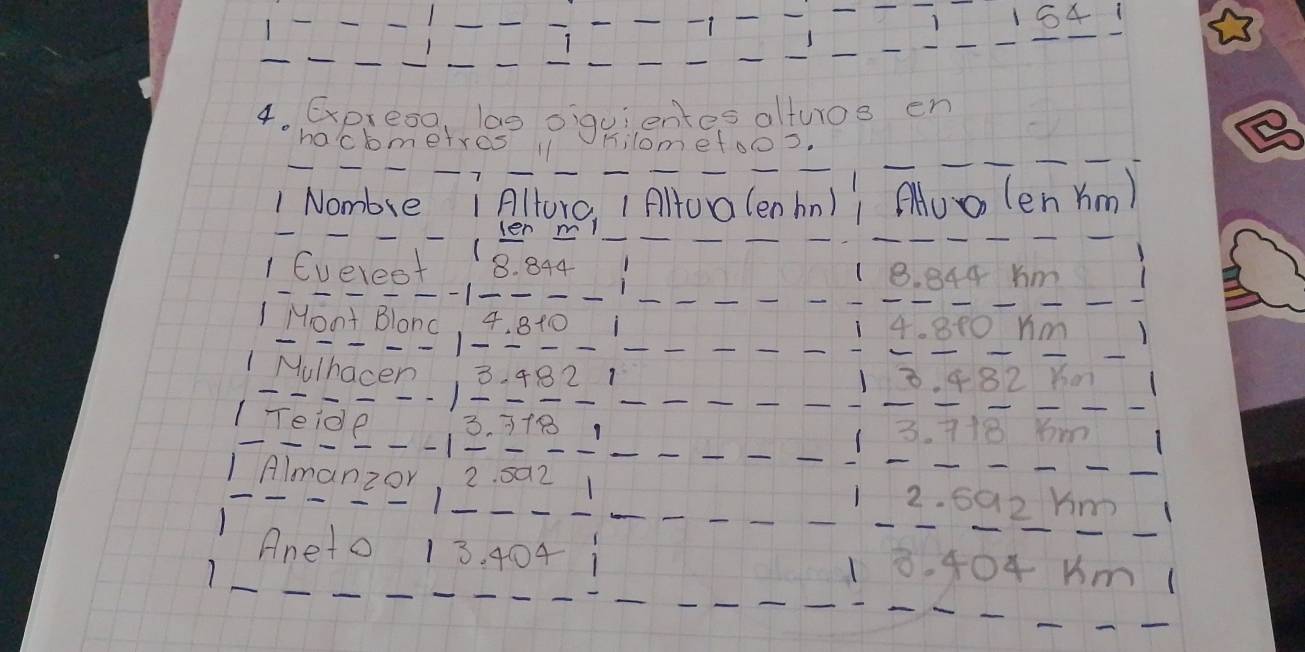 64
4. Expresa las siguientes alturas en
hactometros y kilometros.
Nombre Altura (en m) Altura (en hn) Altura (en Km)
Everest 8.844 8.844 Km
Mont Blanc 4.810 4.810 Km
Mulhacen 3.482 3.482 Km
Teide 3.718 3.718 Km
Almanzor 2.592 2.592 Km
Aneto 3.404 3.404 Km